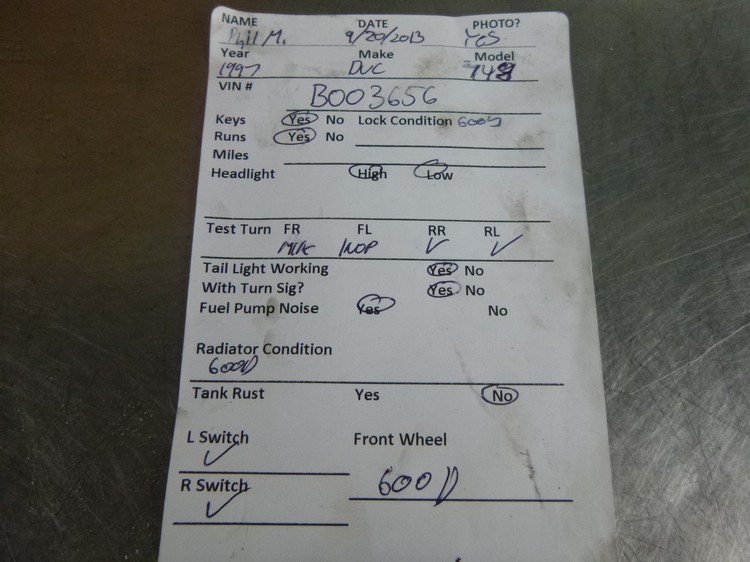 NAME DATE PHOTO?
Phil M. 9/20/2013 YES
Year Make Model
1997 DUC 748
VIN # B003656
Keys Yes No Lock Condition GOOD
Runs Yes No
Miles
Headlight High Low
Test Turn FR FL RR RL
INOP ✓ ✓
Tail Light Working Yes No
With Turn Sig? Yes No
Fuel Pump Noise Yes No
Radiator Condition
GOOD
Tank Rust Yes No
L Switch Front Wheel
✓
R Switch GOOD
✓